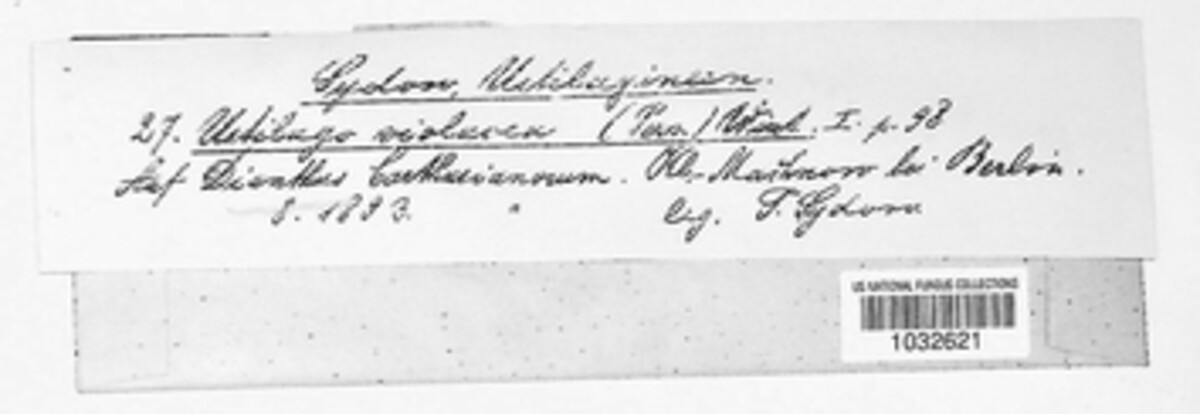 Sydow, Ustilagineen.
27. Ustilago violacea (Pers.) Wint. I. p. 98
Auf Dianthus Carthusianorum. Kl.-Machnow bei Berlin.
8. 1893. leg. P. Sydow
US NATIONAL FUNGUS COLLECTIONS
1032621